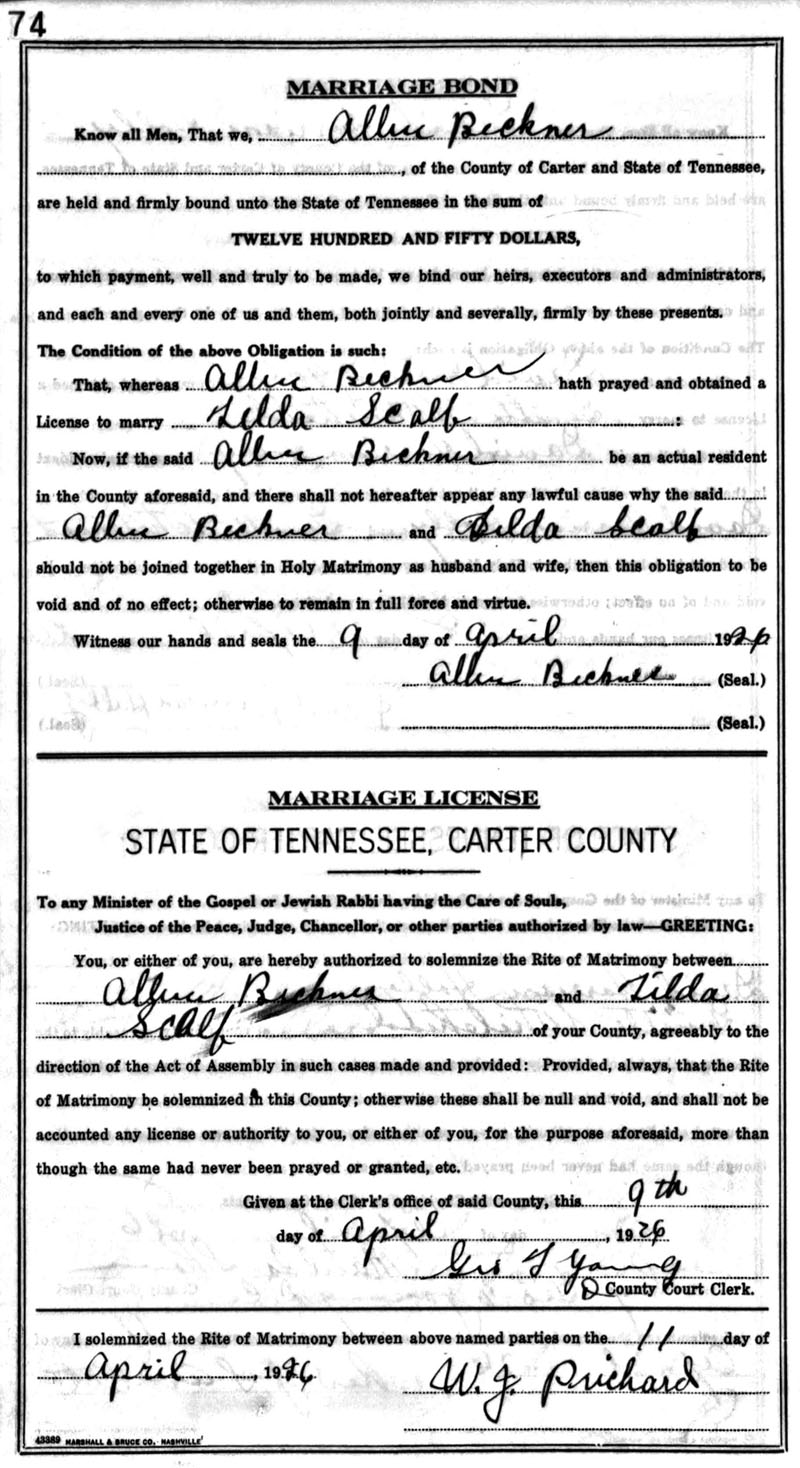 74
MARRIAGE BOND
Know all Men, That we, Allen Beckner
, of the County of Carter and State of Tennessee,
are held and firmly bound unto the State of Tennessee in the sum of
TWELVE HUNDRED AND FIFTY DOLLARS,
to which payment, well and truly to be made, we bind our heirs, executors and administrators,
and each and every one of us and them, both jointly and severally, firmly by these presents.
The Condition of the above Obligation is such:
That, whereas Allen Beckner hath prayed and obtained a
License to marry Tilda Scalf :
Now, if the said Allen Beckner be an actual resident
in the County aforesaid, and there shall not hereafter appear any lawful cause why the said
Allen Beckner and Tilda Scalf
should not be joined together in Holy Matrimony as husband and wife, then this obligation to be
void and of no effect; otherwise to remain in full force and virtue.
Witness our hands and seals the 9 day of April 1926
Allen Beckner (Seal.)
(Seal.)
MARRIAGE LICENSE
STATE OF TENNESSEE, CARTER COUNTY
To any Minister of the Gospel or Jewish Rabbi having the Care of Souls,
Justice of the Peace, Judge, Chancellor, or other parties authorized by law—GREETING:
You, or either of you, are hereby authorized to solemnize the Rite of Matrimony between
Allen Beckner and Tilda
Scalf of your County, agreeably to the
direction of the Act of Assembly in such cases made and provided: Provided, always, that the Rite
of Matrimony be solemnized in this County; otherwise these shall be null and void, and shall not be
accounted any license or authority to you, or either of you, for the purpose aforesaid, more than
though the same had never been prayed or granted, etc.
Given at the Clerk's office of said County, this 9th
day of April , 1926
Geo T Young
D County Court Clerk.
I solemnized the Rite of Matrimony between above named parties on the 11 day of
April , 1926 W. J. Prichard
43389 MARSHALL & BRUCE CO. NASHVILLE